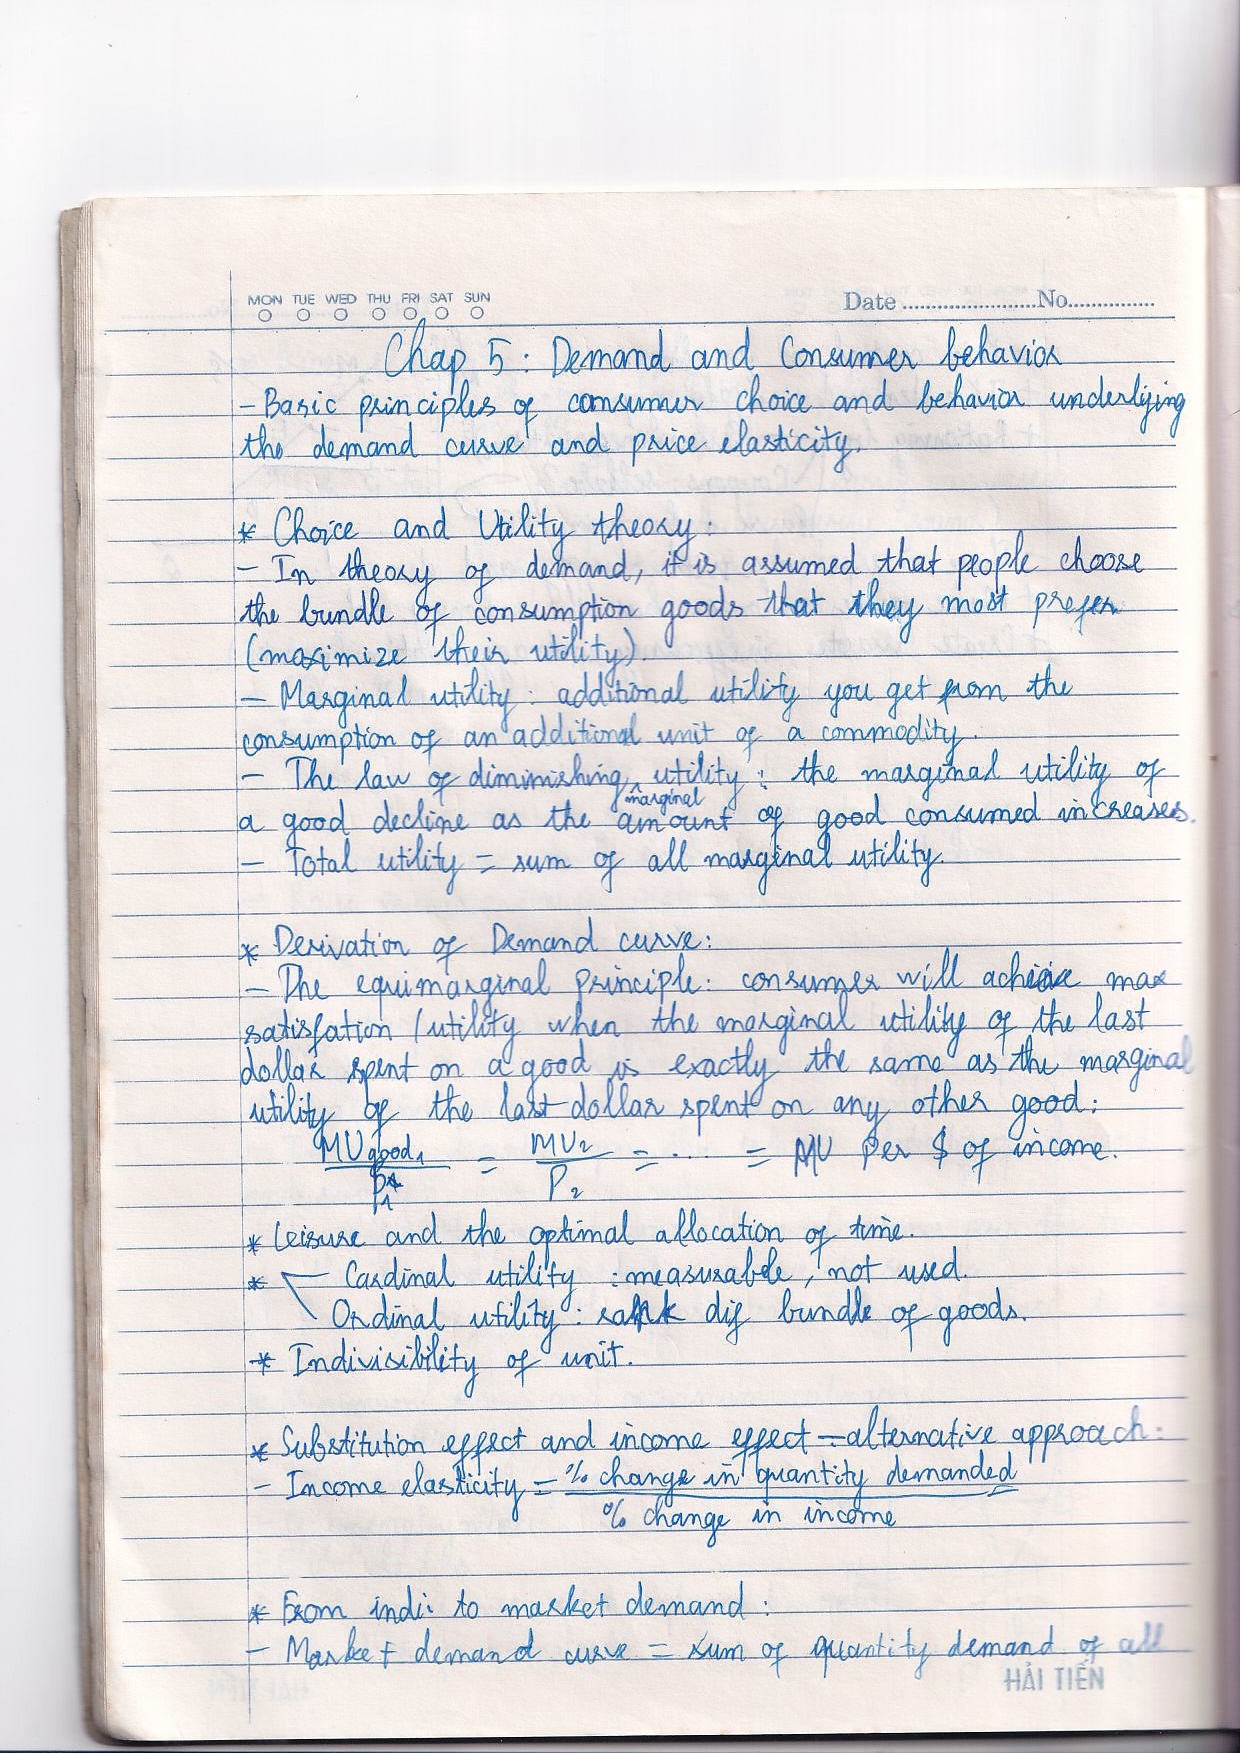 MON TUE WED THU FRI SAT SUN
Date ........................No................
Chap 5: Demand and Consumer behavior
- Basic principles of consumer choice and behavior underlying
the demand curve and price elasticity.
* Choice and Utility theory:
- In theory of demand, it is assumed that people choose
the bundle of consumption goods that they most prefer
(maximize their utility).
- Marginal utility: additional utility you get from the
consumption of an additional unit of a commodity.
- The law of diminishing ^ utility: the marginal utility of
marginal
a good decline as the amount of good consumed increases.
- Total utility = sum of all marginal utility.
* Derivation of Demand curve:
- The equimarginal principle: consumer will achieve max
satisfation / utility when the marginal utility of the last
dollar spent on a good is exactly the same as the marginal
utility of the last dollar spent on any other good:
MU good1 / P1 = MU2 / P2 = ... = MU per $ of income.
* Leisure and the optimal allocation of time.
* Cardinal utility: measurable, not used.
Ordinal utility: rank dif bundle of goods.
* Indivisibility of unit.
* Substitution effect and income effect - alternative approach:
- Income elasticity = % change in quantity demanded
% change in income
* From indi: to market demand:
- Market demand curve = sum of quantity demand of all
HẢI TIẾN